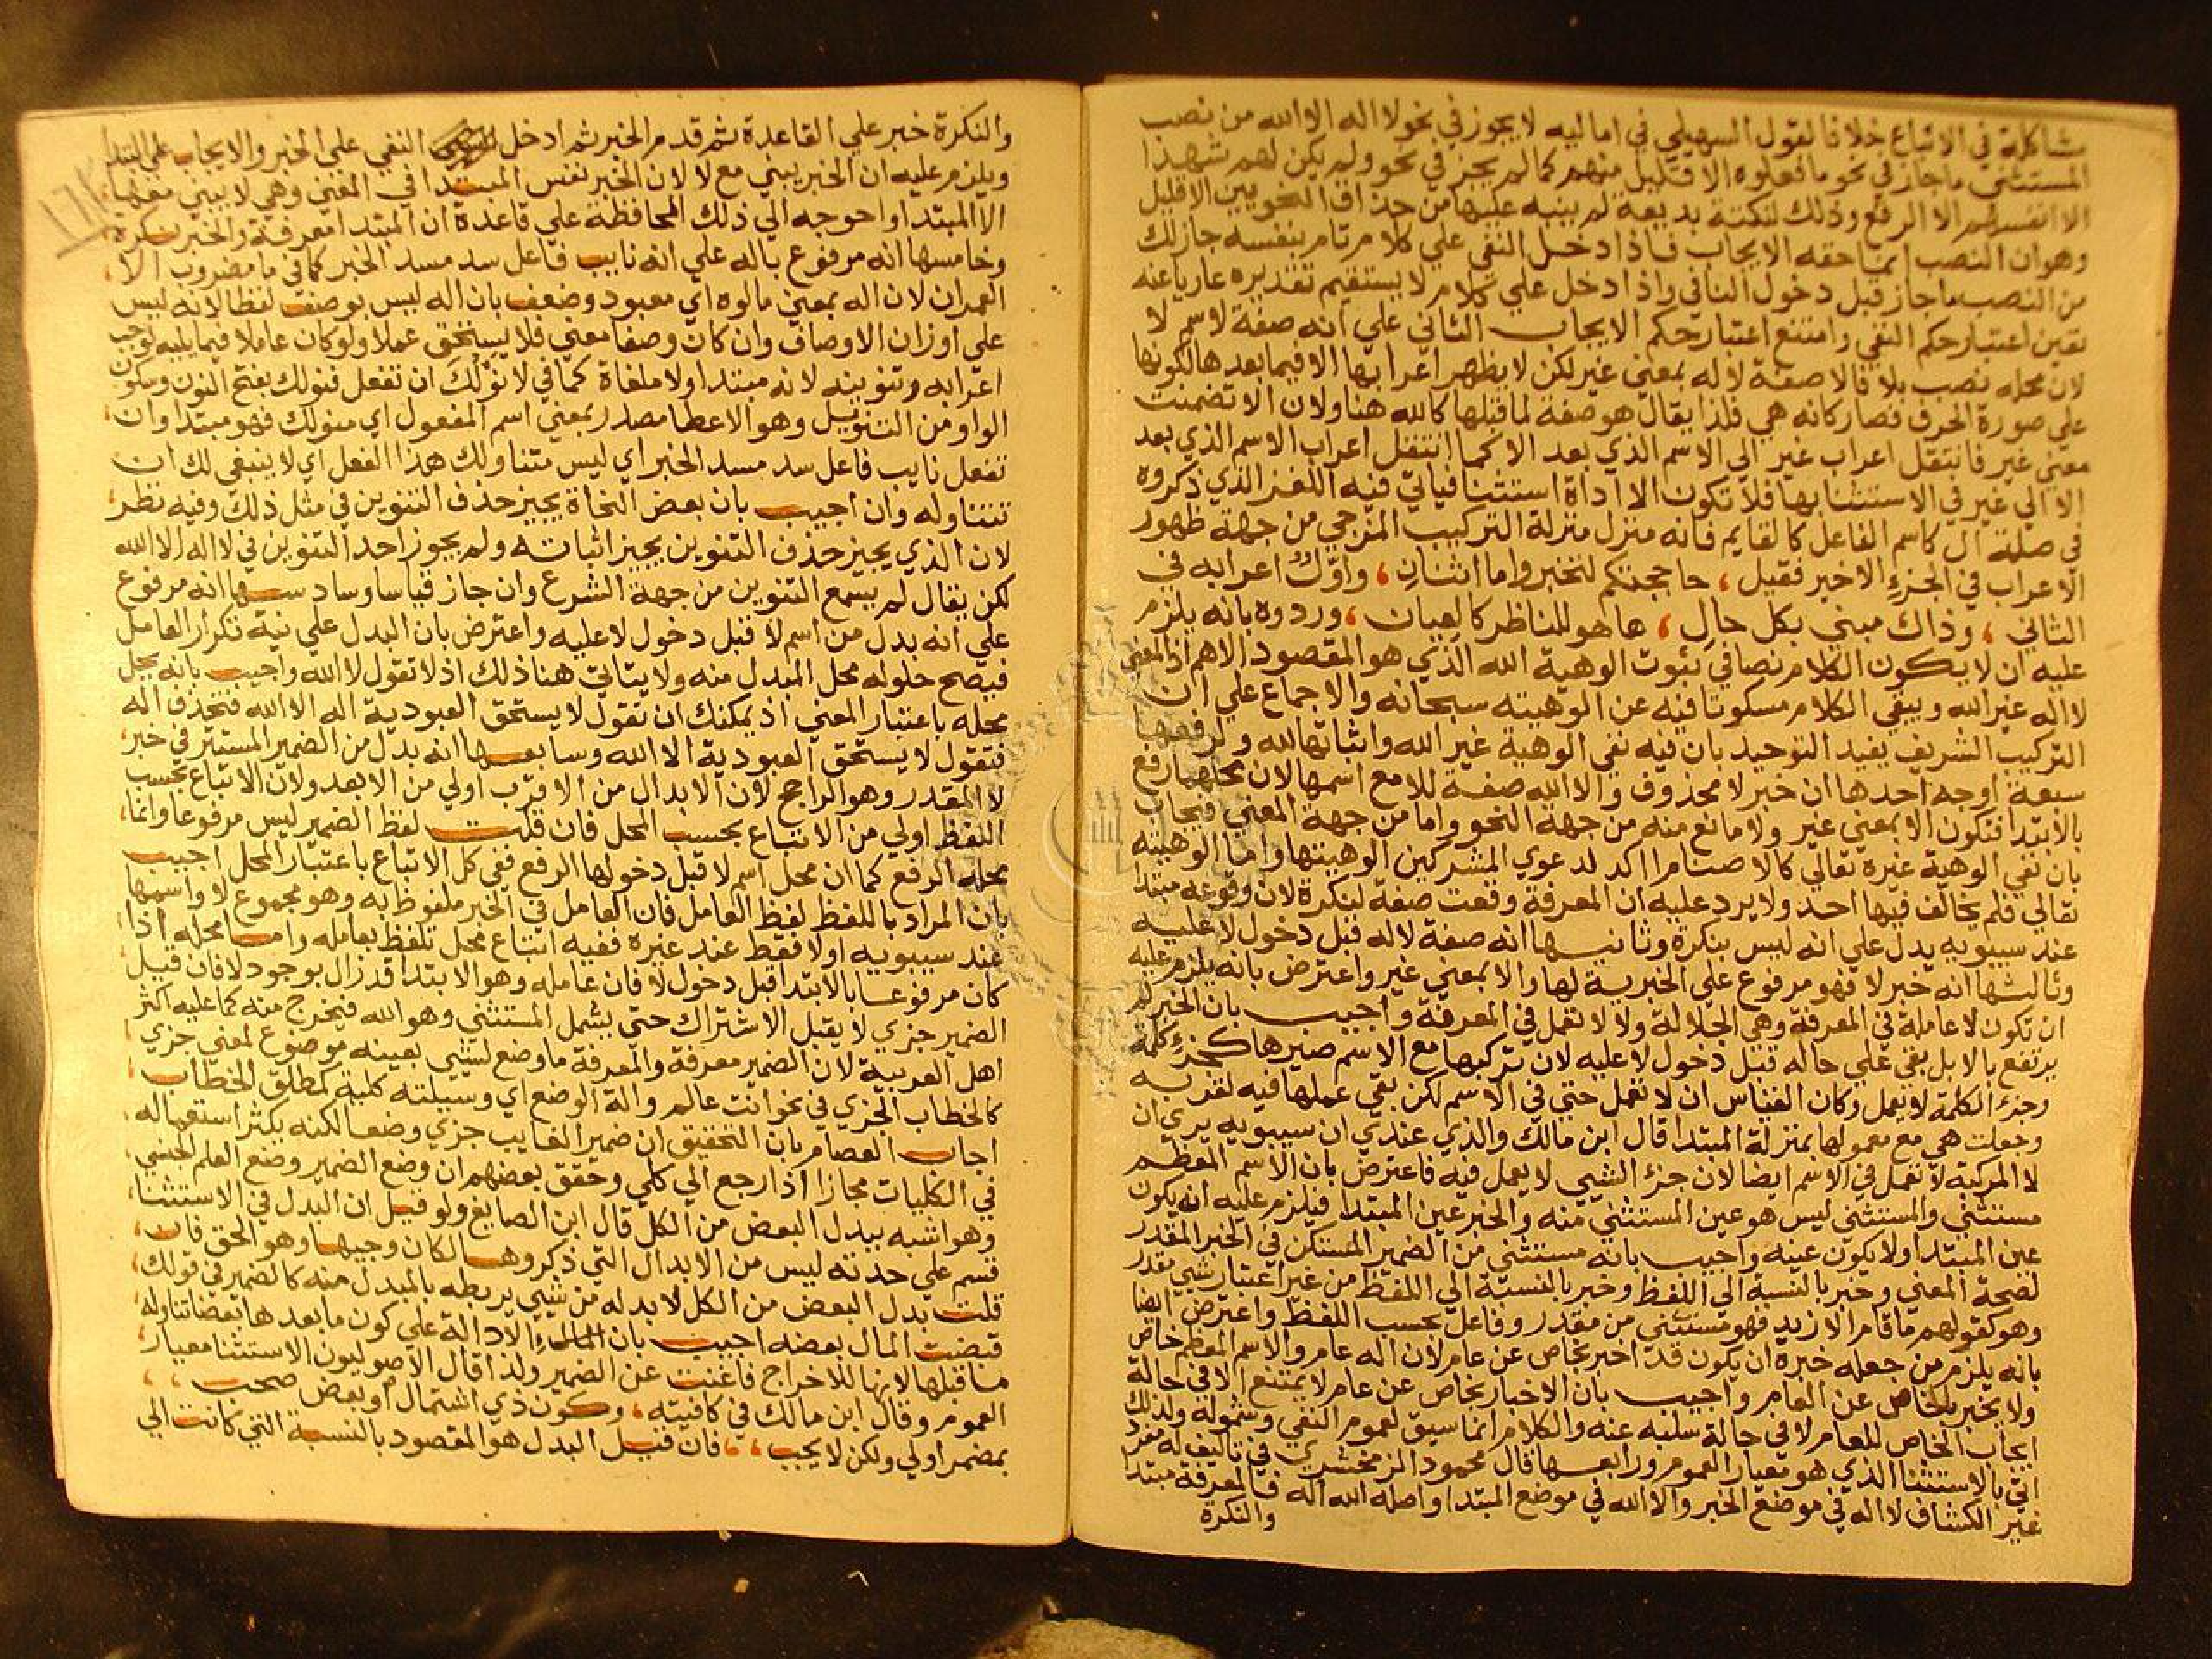 مشاكلة في الاتباع خلافا لقول السهيلي في اماليه لا يجوز في نحو لا اله الا الله من نصب
المستثني ما جاز في نحو ما فعلوه الا قليل منهم كما لم يجز في نحو ولم يكن لهم شهدا
الا انفسهم الا الرفع وذلك لنكتة بديعة لم ينبه عليها من حذاق النحويين الا قليل
وهو ان النصب انما حقه الايجاب فاذا دخل النفي علي كلام تام بنفسه جاز لك
من النصب ما جاز قبل دخول النافي واذا دخل علي كلام لا يستقيم تقديره عاريا عنه
تعين اعتبار حكم النفي وامتنع اعتبار حكم الايجاب الثاني علي انه صفة لاسم لا
لان محله نصب بلا فالا صفة لاله بمعني غير لكن لا يظهر اعرابها الا فيما بعدها لكونها
علي صورة الحرف فصار كانه هي فلذا يقال هو صفة لما قبلها كالله هنا ولان الا تضمنت
معني غير فانتقل اعراب غير الي الاسم الذي بعد الا كما انتقل اعراب الاسم الذي بعد
الا الي غير في الاستثنا بها فلا تكون الا اداة استثنا فياتي فيه اللغز الذي ذكروه
في صلة ال كاسم الفاعل كالقايم فانه منزل منزلة التركيب المزجي من جهة ظهور
الاعراب في الجزء الاخير فقيل ، حاججتكم لتخبروا ما اثنان ، واول اعرابه في
الثاني ، وذاك مبني بكل حال ، ها هو للناظر كالعيان ، وردوه بانه يلزم
عليه ان لا يكون الكلام نصا في ثبوت الوهية الله الذي هو المقصود الاهم اذ المعني
لا اله غير الله ويبقي الكلام مسكوتا فيه عن الوهيته سبحانه والاجماع علي ان
التركيب الشريف يفيد التوحيد بان فيه نفي الوهية غير الله واثباتها لله ولرفعها
سبعة اوجه احدها ان خبر لا محذوف والا الله صفة للا مع اسمها لان محلهما رفع
بالابتدا فتكون الا بمعني غير ولا مانع منه من جهة النحو واما من جهة المعني فيجاب
بان نفي الوهية غيره تعالي كالاصنام اكد لدعوي المشركين الوهيتها واما الوهيته
تعالي فلم يخالف فيها احد ولا يرد عليه ان المعرفة وقعت صفة لنكرة لان وقوعه مبتدا
عند سيبويه يدل علي انه ليس بنكرة وثانيها انه صفة لاله قبل دخول لا عليه
وثالثها انه خبر لا فهو مرفوع علي الخبرية لها والا بمعني غير واعترض بانه يلزم عليه
ان تكون لا عاملة في المعرفة وهي الجلالة ولا لا تعمل في المعرفة واجيب بان الخبر لم
يرتفع بلا بل بقي علي حاله قبل دخول لا عليه لان تركبها مع الاسم صيرها كجزء كلمة
وجزء الكلمة لا يعمل وكان القياس ان لا تعمل حتي في الاسم لكن بقي عملها فيه لقربه
وجعلت هي مع معمولها بمنزلة المبتدا قال ابن مالك والذي عندي ان سيبويه يري ان
لا المركبة لا تعمل في الاسم ايضا لان جزء الشيي لا يعمل فيه فاعترض بان الاسم المعظم
مستثني والمستثني ليس هو عين المستثني منه والخبر عين المبتدا فيلزم عليه انه يكون
عين المبتدا ولا يكون عينه واجيب بانه مستثني من الضمير المستكن في الخبر المقدر
لصحة المعني وخبر بالنسبة الي اللفظ وخبر بالنسبة الي اللفظ من غير اعتبار شيي يقدر
وهو كقولهم ما قام الا زيد فهو مستثني من مقدر وفاعل بحسب اللفظ واعترض ايضا
بانه يلزم من جعله خبره ان يكون قد اخبر بخاص عن عام لان اله عام والاسم المعظم خاص
ولا يخبر بالخاص عن العام واجيب بان الاخبار بخاص عن عام لا يمتنع الا في حالة
ايجاب الخاص للعام لا في حالة سلبه عنه والكلام انما سيق لعموم النفي وشموله ولذلك
اتي بالاستثنا الذي هو معيار العموم ورابعها قال محمود الزمخشري في تاليف له مفرد
غير الكشاف لا اله في موضع الخبر والا الله في موضع المبتدا واصله الله اله فالمعرفة مبتدا
والنكرة
والنكرة خبر علي القاعدة ثم قدم الخبر ثم ادخل النفي علي الخبر والايجاب علي المبتدا
ويلزم عليه ان الخبر يبني مع لا لان الخبر نفس المبتدا في المعني وهي لا يبني معها
الا المبتدا واحوجه الي ذلك المحافظة علي قاعدة ان المبتدا معرفة والخبر نكرة
وخامسها انه مرفوع باله علي انه نايب فاعل سد مسد الخبر كما في ما مضروب الا
العمران لان اله بمعني مالوه اي معبود وضعف بان اله ليس بوصف لفظا لانه ليس
علي اوزان الاوصاف وان كان وصفا معني فلا يستحق عملا ولو كان عاملا فيما يليه لوجب
اعرابه وتنوينه لانه مبتدا ولا ملغاة كما في لا نولك ان تفعل فنولك بفتح النون وسكون
الواو من التنويل وهو الاعطا مصدر بمعني اسم المفعول اي منولك فهو مبتدا وان
تفعل نايب فاعل سد مسد الخبر اي ليس متناولك هذا الفعل اي لا ينبغي لك ان
تتناوله وان اجيب بان بعض النحاة يجيز حذف التنوين في مثل ذلك وفيه نظر
لان الذي يجيز حذف التنوين يجيز اثباته ولم يجوز احد التنوين في لا اله الا الله
لكن يقال لم يسمع التنوين من جهة الشرع وان جاز قياسا وسادسها انه مرفوع
علي انه بدل من اسم لا قبل دخول لا عليه واعترض بان البدل علي نية تكرار العامل
فيصح حلوله محل المبدل منه ولا يتاتي هنا ذلك اذ لا تقول لا الله واجيب بانه يحل
محله باعتبار المعني اذ يمكنك ان تقول لا يستحق العبودية اله الا الله فتحذف اله
فتقول لا يستحق العبودية الا الله وسابعها انه بدل من الضمير المستتر في خبر
لا المقدر وهو الراجح لان الابدال من الاقرب اولي من الابعد ولان الاتباع بحسب
اللفظ اولي من الاتباع بحسب المحل فان قلت لفظ الضمير ليس مرفوعا وانما
محله الرفع كما ان محل اسم لا قبل دخولها الرفع ففي كل الاتباع باعتبار المحل اجيب
بان المراد باللفظ لفظ العامل فان العامل في الخبر ملفوظ به وهو مجموع لا واسمها
عند سيبويه اولا فقط عند غيره ففيه اتباع لمحل تلفظ بعامله واما محله اذا
كان مرفوعا بالابتدا قبل دخول لا فان عامله وهو الابتدا قد زال بوجود لا فان قيل
الضمير جزي لا يقبل الاشتراك حتي يشمل المستثني وهو الله فيخرج منه كما عليه اكثر
اهل العربية لان الضمير معرفة والمعرفة ما وضع لشيي بعينه موضوع لمعني جزي
كالخطاب الجزي في نحو انت عالم والة الوضع اي وسيلته كلية كمطلق الخطاب
اجاب العصام بان التحقيق ان ضمير الغايب جزي وضعا لكنه يكثر استعماله
في الكليات مجازا اذا رجع الي كلي وحقق بعضهم ان وضع الضمير وضع العلم الجنسي
وهو اشبه ببدل البعض من الكل قال ابن الصايغ ولو قيل ان البدل في الاستثنا
قسم علي حدته ليس من الابدال التي ذكروها لكان وجيها وهو الحق فان
قلت بدل البعض من الكل لا بد له من شيي يربطه بالمبدل منه كالضمير في قولك
قبضت المال بعضه اجيب بان الا دالة علي كون ما بعدها بعضا تناوله
ما قبلها لانها للاخراج فاغنت عن الضمير ولذا قال الاصوليون الاستثنا معيار
العموم وقال ابن مالك في كافيته ، وكون ذي اشتمال او بعض صحب ، ،
بمضمر اولي ولكن لا يجب ، ، فان قيل البدل هو المقصود بالنسبة التي كانت الي